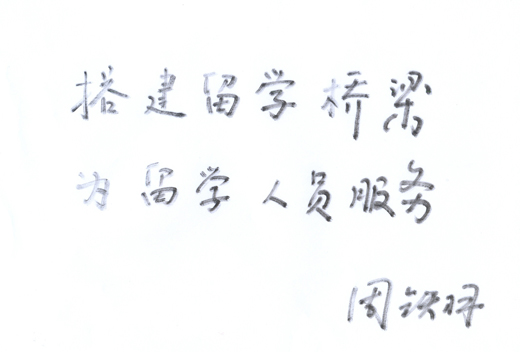 搭建留学桥梁
为留学人员服务
周铁